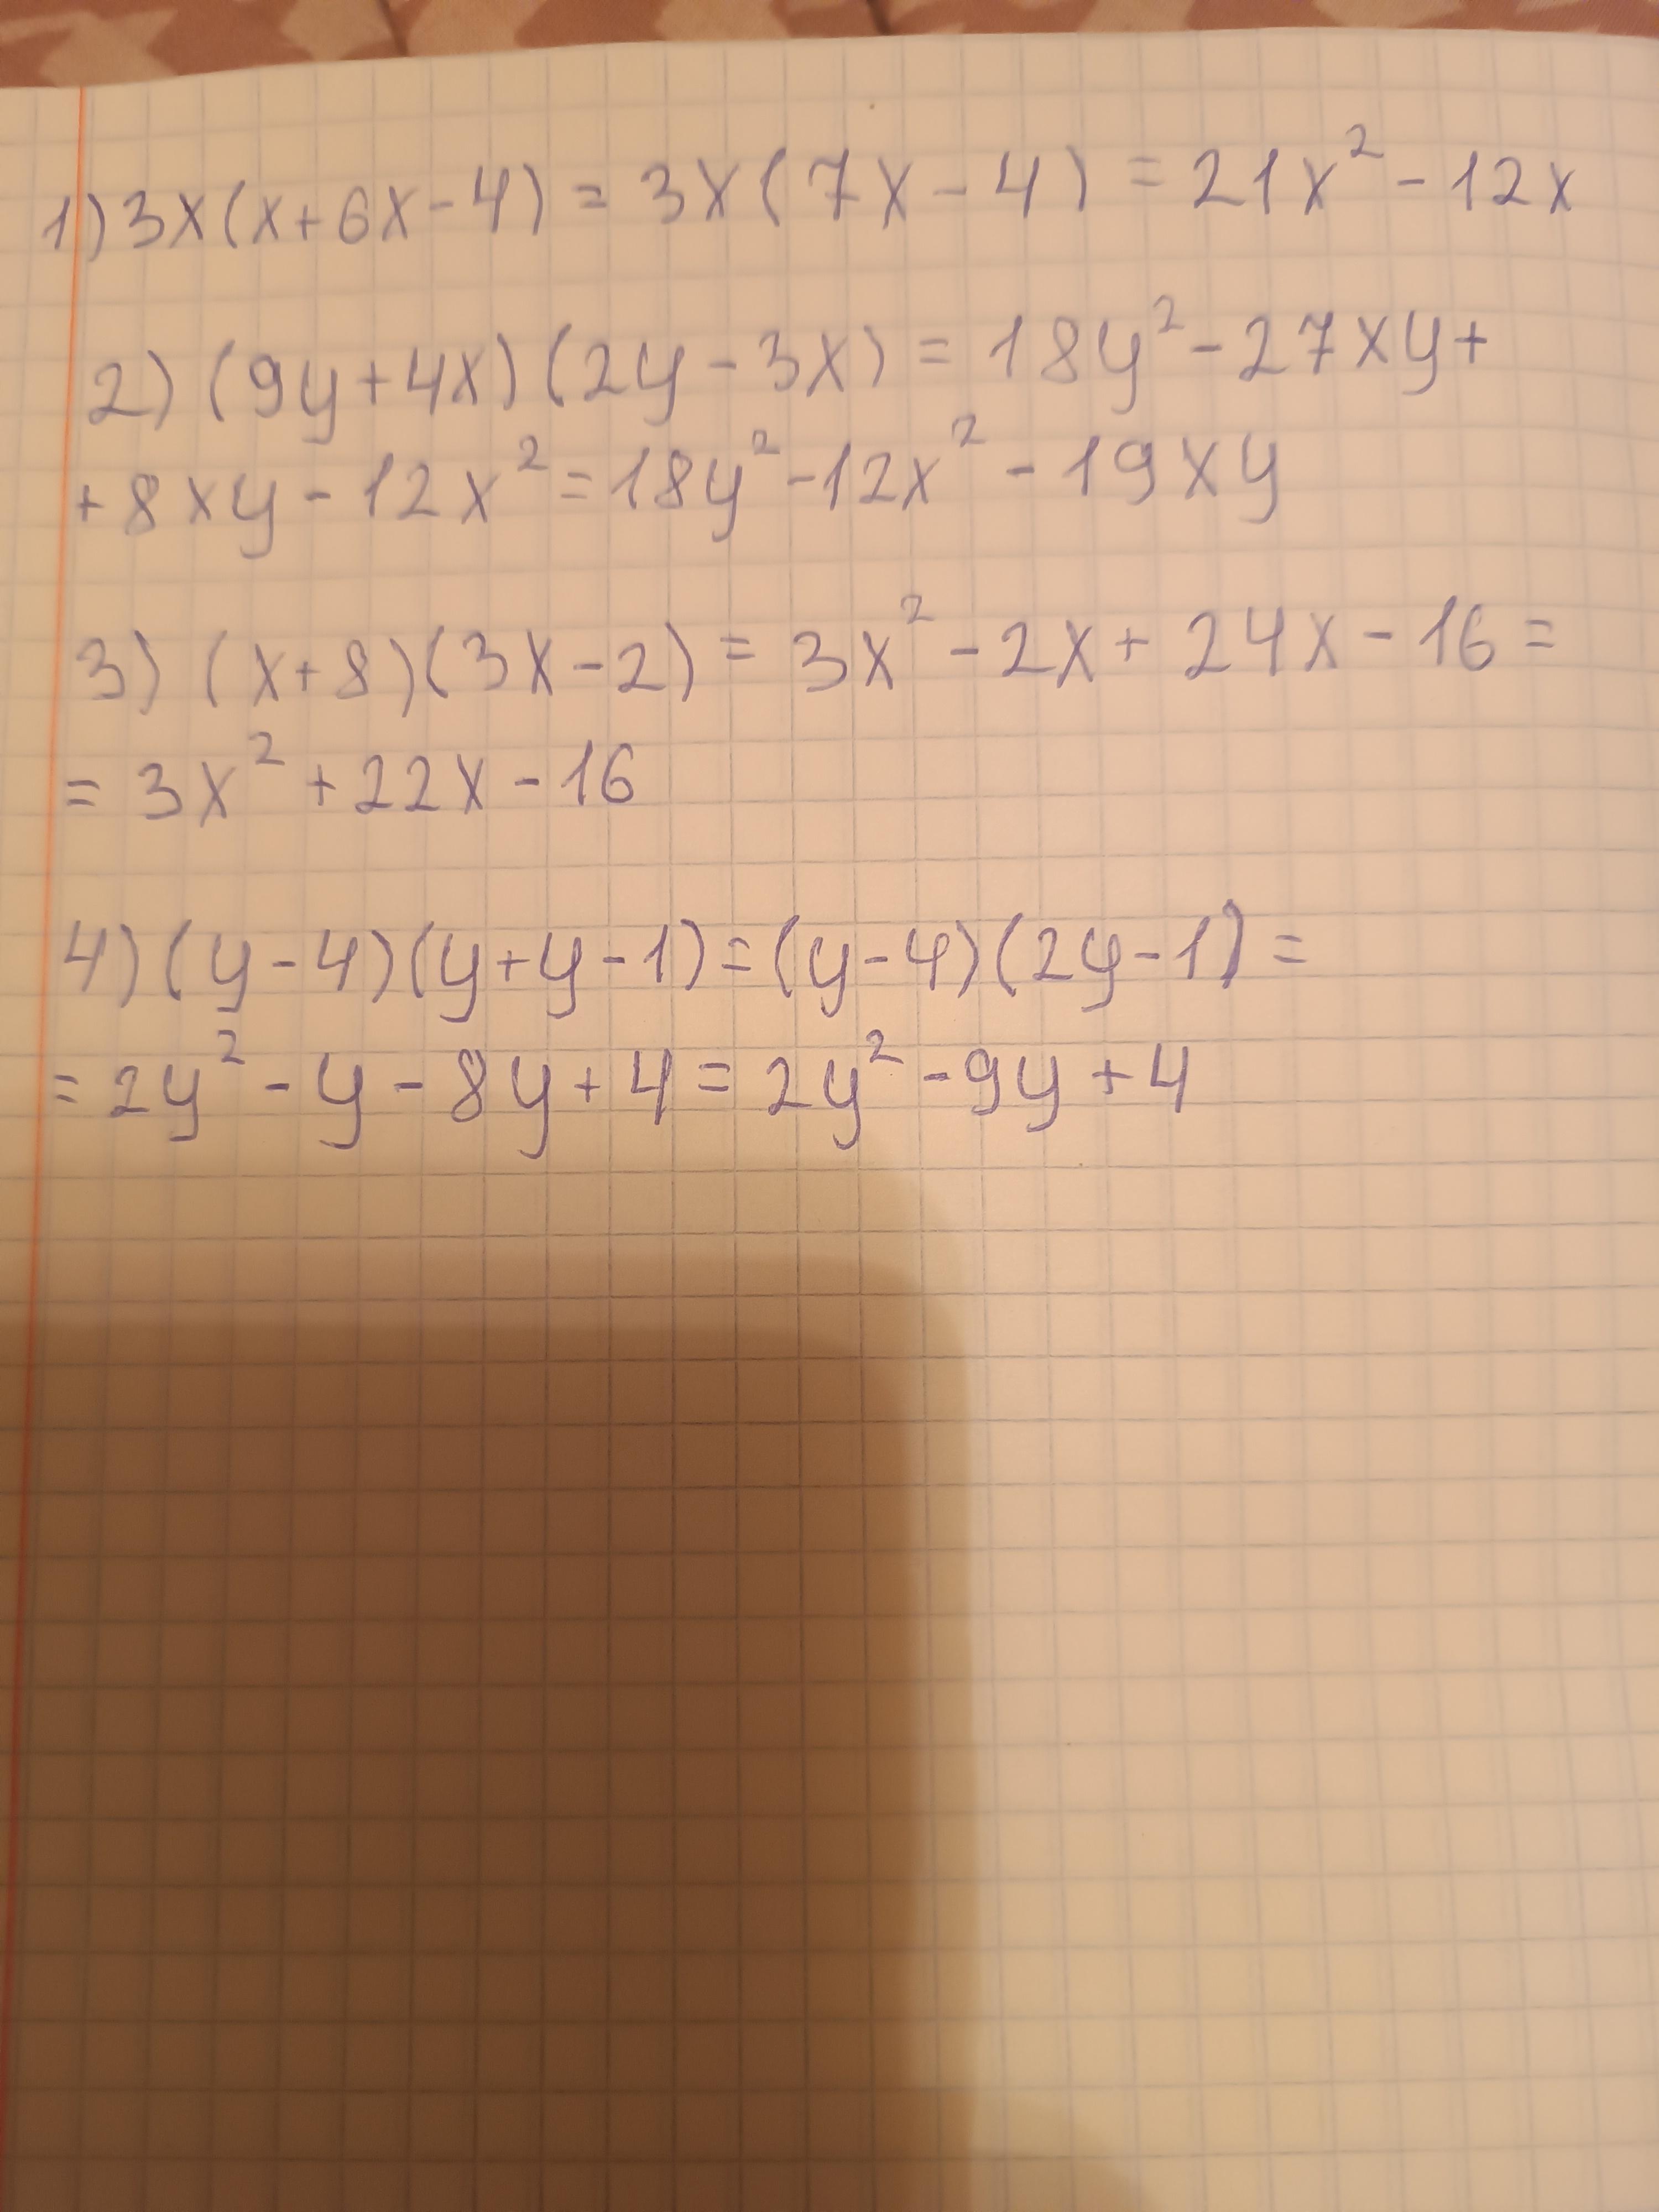 1) 3x(x+6x-4) = 3x(7x-4) = 21x² - 12x
2) (9y+4x)(2y-3x) = 18y² - 27xy +
+ 8xy - 12x² = 18y² - 12x² - 19xy
3) (x+8)(3x-2) = 3x² - 2x + 24x - 16 =
= 3x² + 22x - 16
4) (y-4)(y+y-1) = (y-4)(2y-1) =
= 2y² - y - 8y + 4 = 2y² - 9y + 4